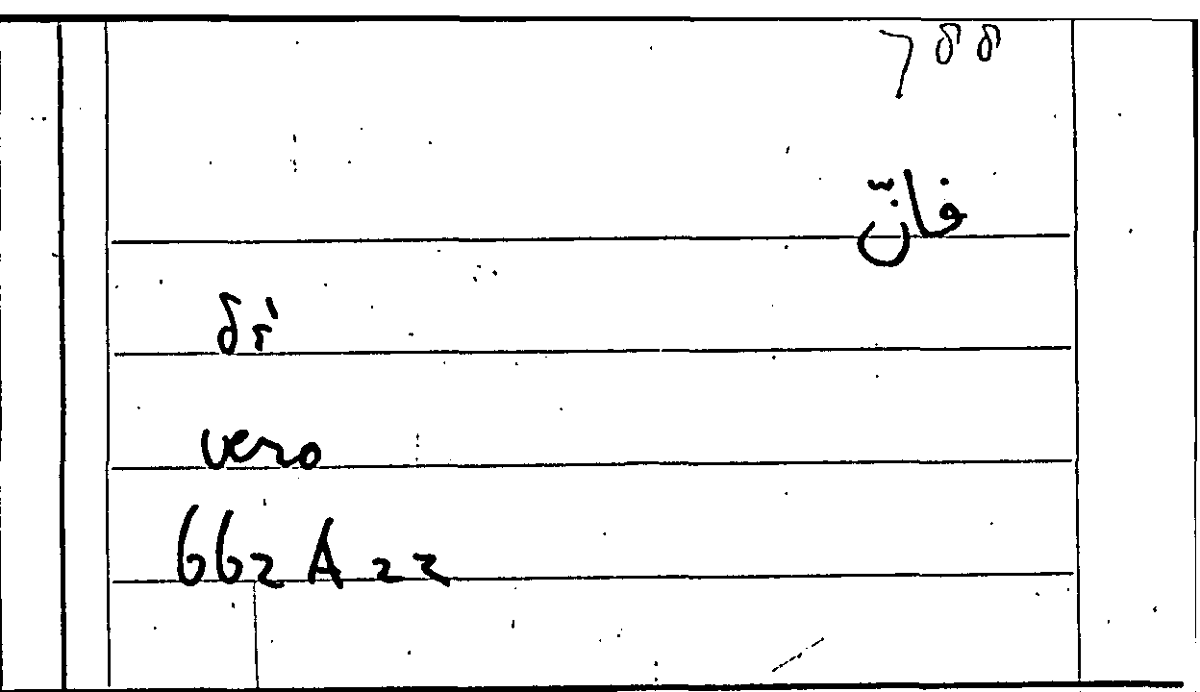 788
فانّ
δέ
vero
662 A 22